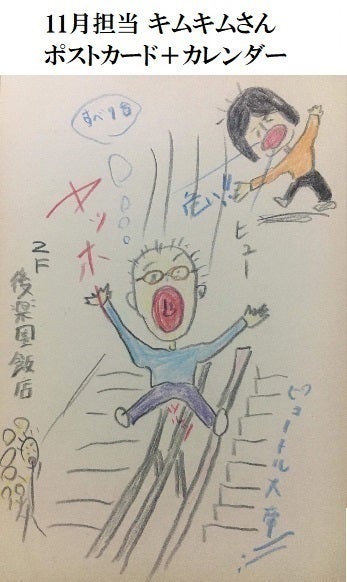 11月担当 キムキムさん
ポストカード＋カレンダー
すべり台
ヤッホー
危い!!
ヒュー
2F
後楽園飯店
ピョートル大帝